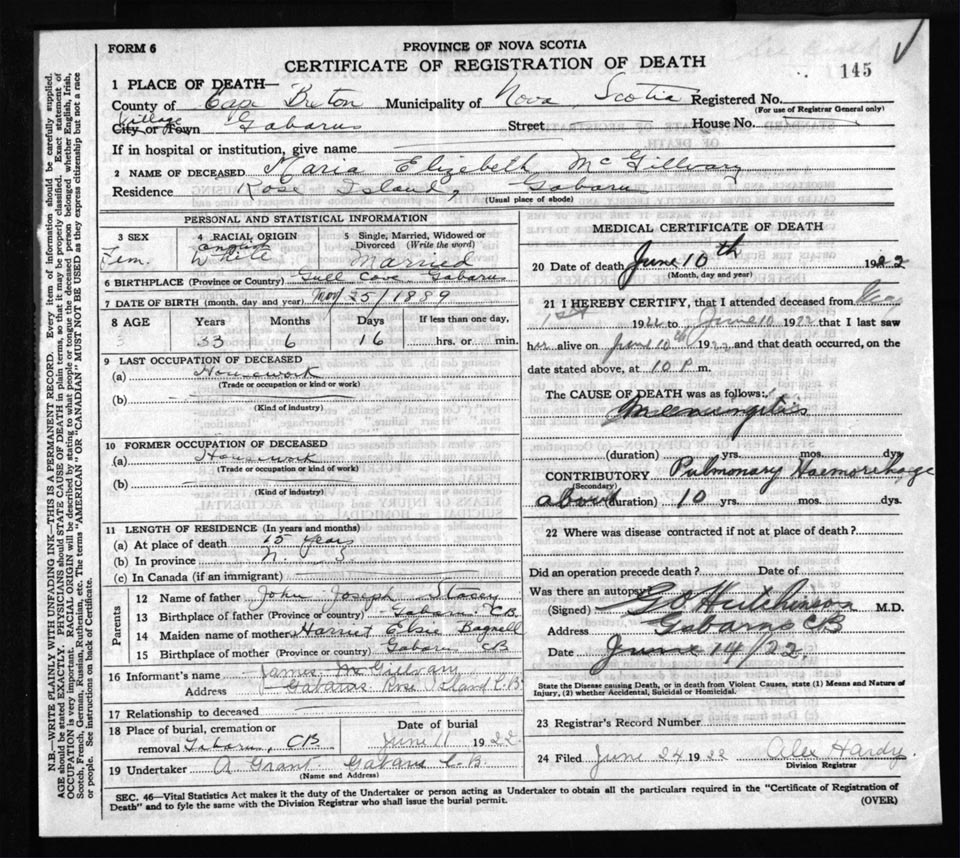 FORM 6
PROVINCE OF NOVA SCOTIA
CERTIFICATE OF REGISTRATION OF DEATH
145
1 PLACE OF DEATH—
County of Cape Breton Municipality of Nova Scotia Registered No.
(For use of Registrar General only)
Village
City or Town Gabarus Street House No.
If in hospital or institution, give name
2 NAME OF DECEASED Maria Elizebeth McGillvary
Residence Rose Island, Gabarus
(Usual place of abode)
PERSONAL AND STATISTICAL INFORMATION
3 SEX
Fem.
4 RACIAL ORIGIN
English
White
5 Single, Married, Widowed or Divorced (Write the word)
Married
6 BIRTHPLACE (Province or Country) Gull Cove Gabarus
7 DATE OF BIRTH (month, day and year) Nov 25/1889
8 AGE
Years
33
Months
6
Days
16
If less than one day,
hrs. or min.
9 LAST OCCUPATION OF DECEASED
(a) Housework
(Trade or occupation or kind or work)
(b)
(Kind of industry)
10 FORMER OCCUPATION OF DECEASED
(a) Housework
(Trade or occupation or kind of work)
(b)
(Kind of industry)
11 LENGTH OF RESIDENCE (In years and months)
(a) At place of death 15 years
(b) In province N. S
(c) In Canada (if an immigrant)
Parents
12 Name of father John Joseph Stacey
13 Birthplace of father (Province or country) Gabarus CB
14 Maiden name of mother Harriet Elsie Bagnell
15 Birthplace of mother (Province or country) Gabarus CB
16 Informant's name James McGillvary
Address Gabarus Rose Island C.B
17 Relationship to deceased
18 Place of burial, cremation or removal Gabarus, CB
Date of burial
June 11 1922
19 Undertaker A Grant Gabarus C.B.
(Name and Address)
MEDICAL CERTIFICATE OF DEATH
20 Date of death June 10th 1922
(Month, day and year)
21 I HEREBY CERTIFY, that I attended deceased from
1st 1922 to June 10 1922 that I last saw
her alive on June 10th 1922 and that death occurred, on the
date stated above, at 10 P. m.
The CAUSE OF DEATH was as follows:
Meningitis
(duration) yrs. mos. dys.
CONTRIBUTORY Pulmonary Haemorrhage
(Secondary)
about (duration) 10 yrs. mos. dys.
22 Where was disease contracted if not at place of death?
Did an operation precede death? Date of
Was there an autopsy?
(Signed) Hutchinson M.D.
Address Gabarus CB
Date June 14/22.
State the Disease causing Death, or in death from Violent Causes, state (1) Means and Nature of
Injury, (2) whether Accidental, Suicidal or Homicidal.
23 Registrar's Record Number
24 Filed June 24 1922 Alex Hardy
Division Registrar
SEC. 46—Vital Statistics Act makes it the duty of the Undertaker or person acting as Undertaker to obtain all the particulars required in the "Certificate of Registration of
Death" and to fyle the same with the Division Registrar who shall issue the burial permit.
(OVER)
N.B.—WRITE PLAINLY WITH UNFADING INK—THIS IS A PERMANENT RECORD. Every item of information should be carefully supplied.
AGE should be stated EXACTLY. PHYSICIANS should STATE CAUSE OF DEATH in plain terms, so that it may be properly classified. Exact statement of
OCCUPATION is very important. RACIAL ORIGIN will be described by stating to what people or tongue the deceased person belonged, whether English, Irish,
Scotch, French, German, Russian, Ruthenian, etc. The terms "AMERICAN" OR "CANADIAN" MUST NOT BE USED as they express citizenship but not a race
or people. See instructions on back of Certificate.